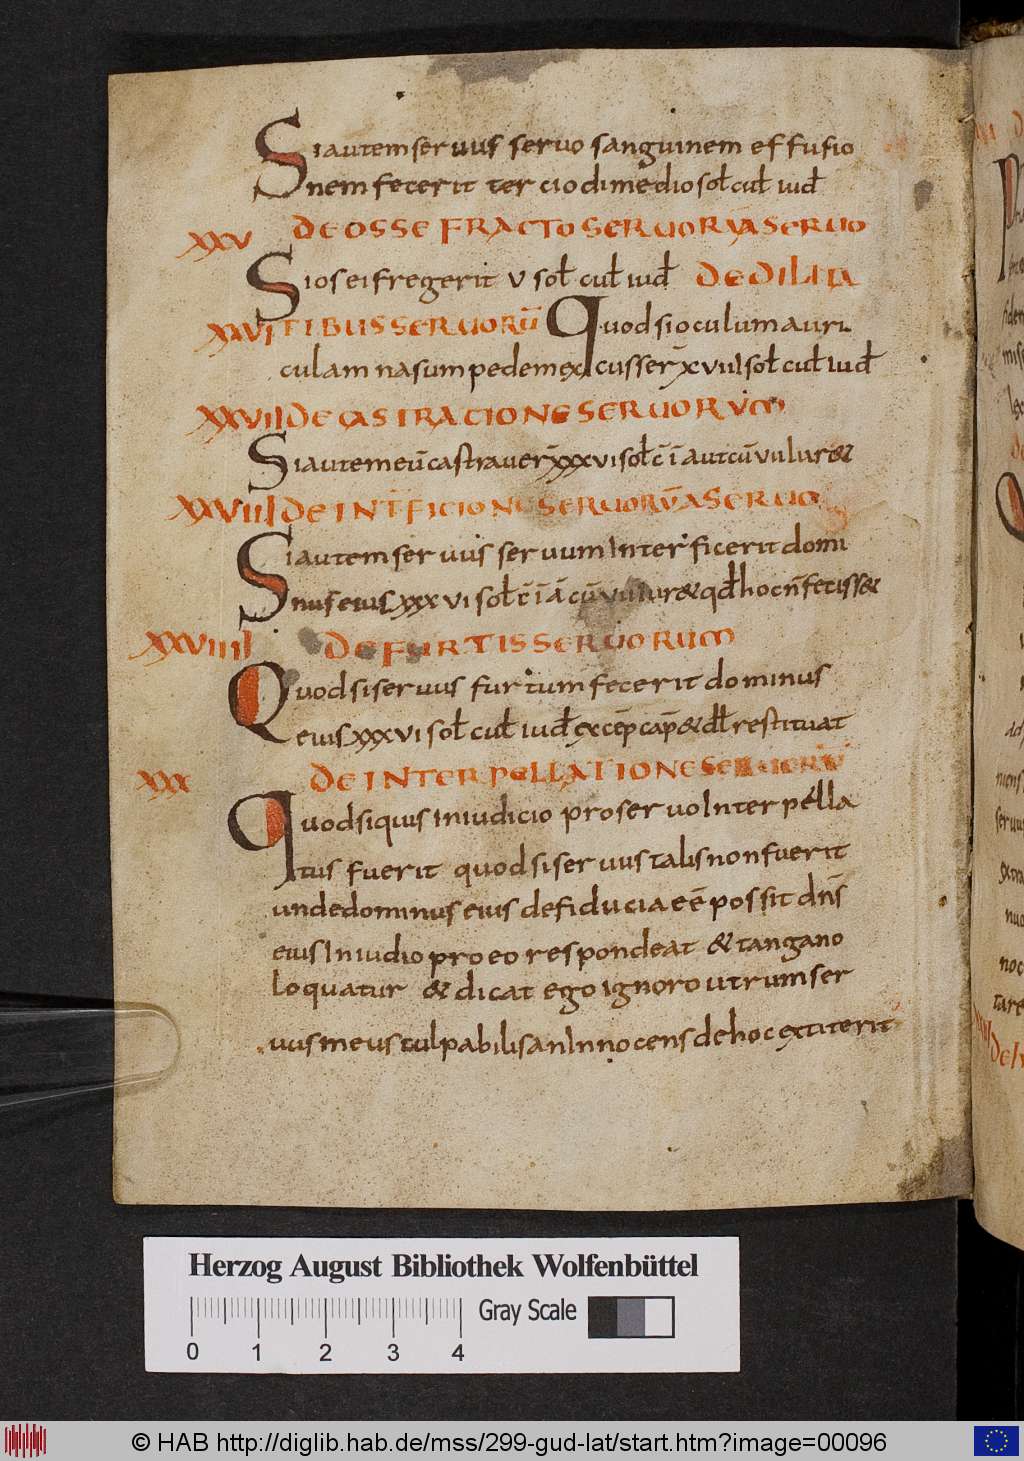 Siautemseruus seruo sanguinem effusio
nem fecerit ter ciodimedio sol̄ cul̄ iud̄
XXV DE OSSE FRACTO SERUORŪ A SERUO
Si os ei fregerit v sol̄ cul̄ iud̄ DE DILITA
XXVI TIBUS SERUORŪ Quod si oculum auri
culam nasum pedem excusser̄ xviii sol̄ cul̄ iud̄
XXVII DE CASTRATIONE SERUORUM
Si autem eū castrauer̄ xxxvi sol̄ c̄ ī aut cū vulur&
XXVIII DE INT̄FICIONE SERUORŪ A SERUO
Si autem seruus seruum interficerit domi
nus eius xxxvi sol̄ c̄ ī ā cū vulur& qd̄ hoc n̄ fecisse&
XXVIIII DE FURTIS SERUORUM
Quod si seruus furtum fecerit dominus
eius xxxvi sol̄ cul̄ iud̄ excep̄ cap̄ & dl̄ restituat
XXX DE INTERPELLATIONE SERUORŪ
Quod siquis in iudicio pro seruo interpella
tus fuerit quod si seruus talis non fuerit
unde dominus eius de fiducia eē possit dn̄s
eius in iudio pro eo respondeat & tangano
loquatur & dicat ego ignoro utrum ser
uus meus culpabilis an innocens de hoc extiterit
Herzog August Bibliothek Wolfenbüttel
Gray Scale
0 1 2 3 4
© HAB http://diglib.hab.de/mss/299-gud-lat/start.htm?image=00096